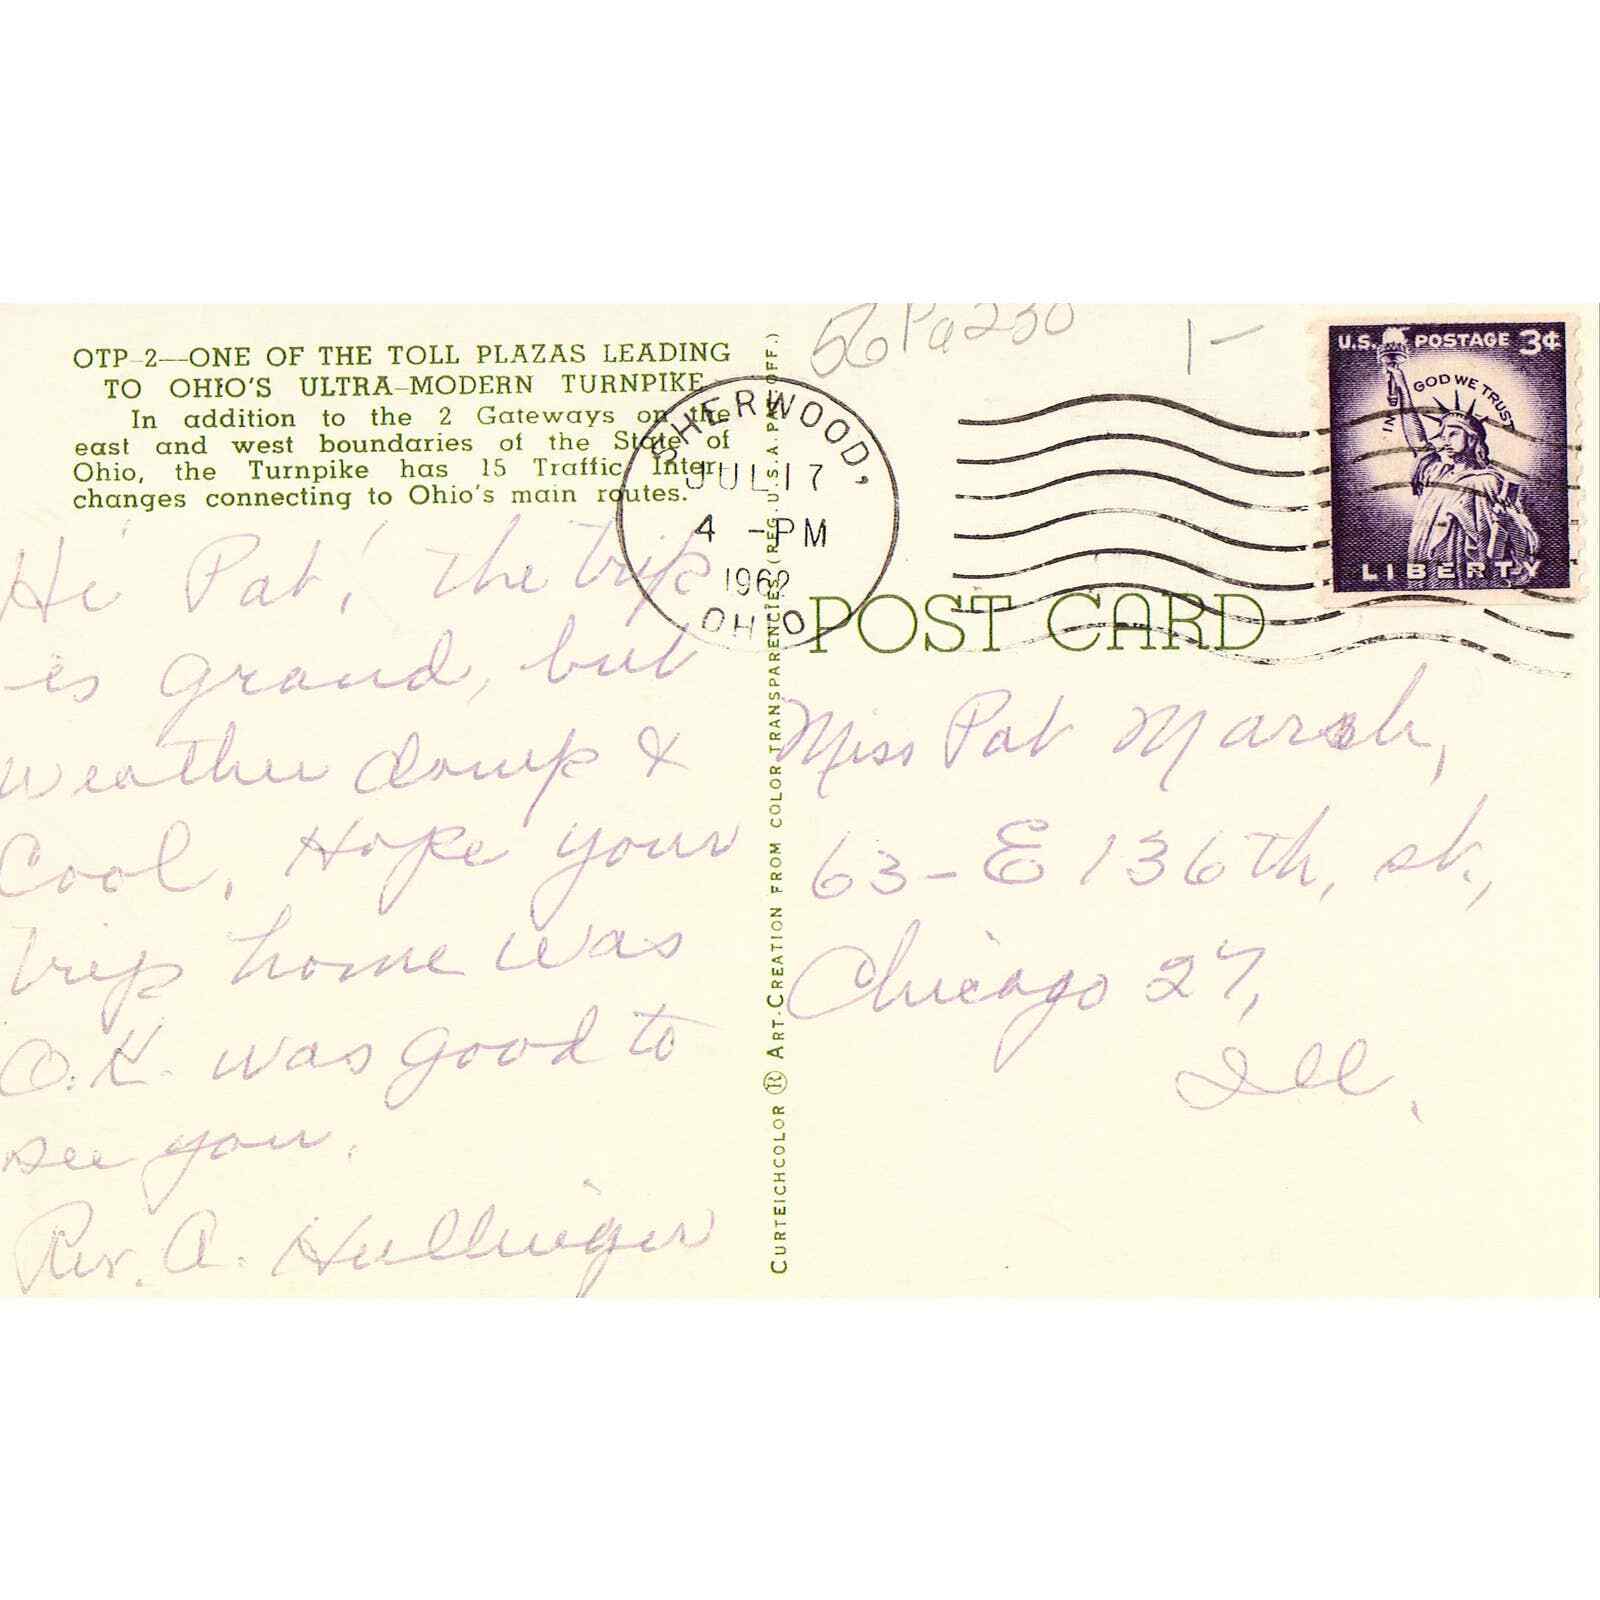 56 Pa 230
1-
OTP-2—ONE OF THE TOLL PLAZAS LEADING
TO OHIO'S ULTRA-MODERN TURNPIKE
In addition to the 2 Gateways on the
east and west boundaries of the State of
Ohio, the Turnpike has 15 Traffic Inter-
changes connecting to Ohio's main routes.
Hi Pat! the trip
is grand, but
weather damp &
Cool. Hope your
trip home was
O.K. was good to
see you.
Rev. A. Hullinger
SHERWOOD,
JUL 17
4 -PM
1962
OHIO
CURTEICHCOLOR ® ART-CREATION FROM COLOR TRANSPARENCIES (REG. U.S.A. PAT. OFF.)
U.S. POSTAGE 3¢
IN GOD WE TRUST
LIBERTY
POST CARD
Miss Pat Marsh,
63-E 136th, st.,
Chicago 27,
Ill.